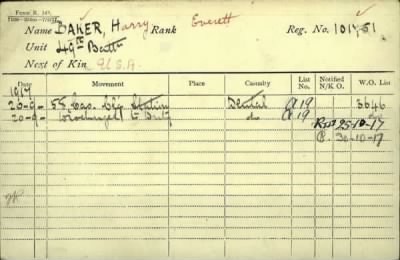 Form R. 149.
Name BAKER, Harry Everett Rank Reg. No. 101751
Unit 49th Battn
Next of Kin U.S.A.
Date Movement Place Casualty List No. Notified N/K O. W.O. List
1917
20-9- 55 Cas. Clg Station Dental A19 3646
20-9- Discharged to Duty do A19 do
25-10-17
C. 30-10-17